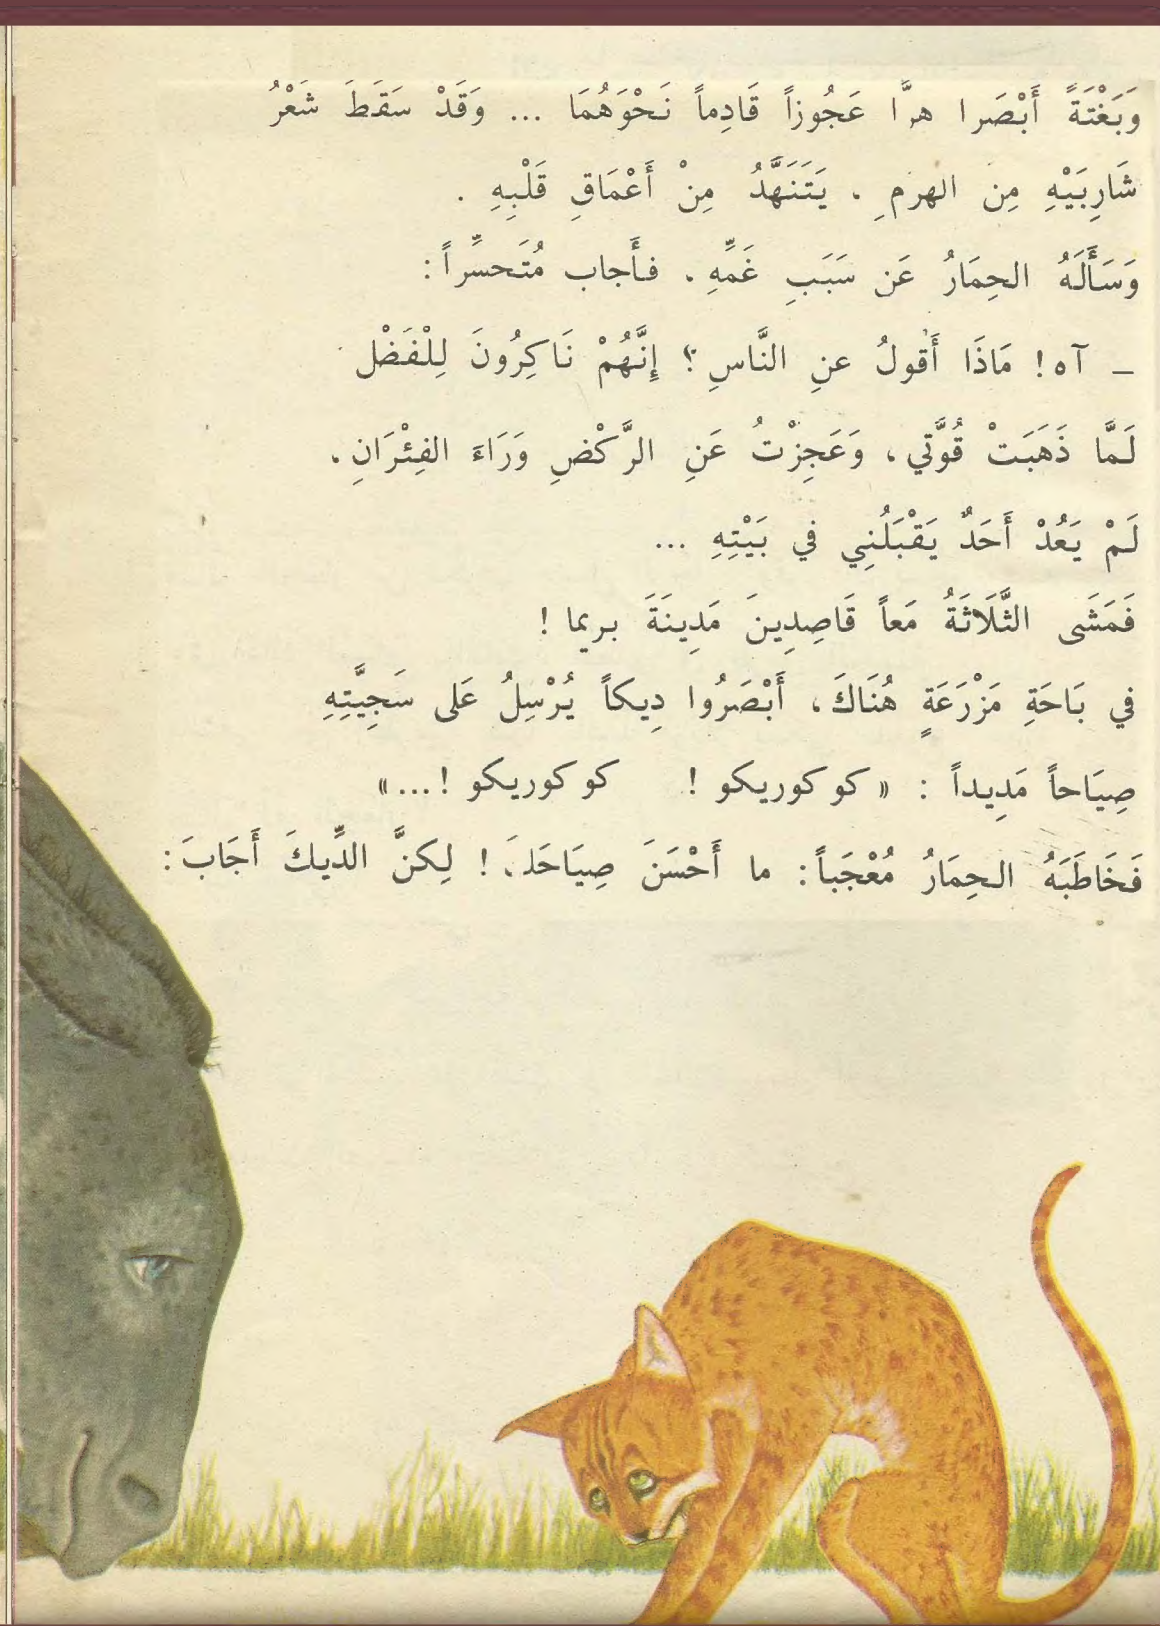 وَبَغْتَةً أَبْصَرا هرَّا عَجُوزاً قَادِماً نَحْوَهُمَا ... وَقَدْ سَقَطَ شَعْرُ
شَارِبَيْهِ مِن الهرمِ ، يَتَنَهَّدُ مِنْ أَعْمَاقِ قَلْبِهِ .
وَسَأَلَهُ الحِمَارُ عَن سَبَبِ غَمِّهِ ، فأَجاب مُتَحسِّراً :
– آه ! مَاذَا أَقولُ عنِ النَّاسِ ؟ إِنَّهُمْ نَاكِرُونَ لِلْفَضْل
لَمَّا ذَهَبَتْ قُوَّتي ، وَعَجِزْتُ عَنِ الرَّكْضِ وَرَاءَ الفِئْرَانِ ،
لَمْ يَعُدْ أَحَدٌ يَقْبَلُنِي في بَيْتِهِ ...
فَمَشَى الثَّلَاثَةُ مَعاً قَاصِدِينَ مَدِينَةَ بريما !
في بَاحَةِ مَزْرَعَةٍ هُنَاكَ ، أَبْصَرُوا دِيكاً يُرْسِلُ عَلى سَجِيَّتِهِ
صِيَاحاً مَدِيداً : « كوكوريكو ! كوكوريكو ! ... »
فَخَاطَبَهُ الحِمَارُ مُعْجَباً : ما أَحْسَنَ صِيَاحَكَ ! لِكنَّ الدِّيكَ أَجَابَ :